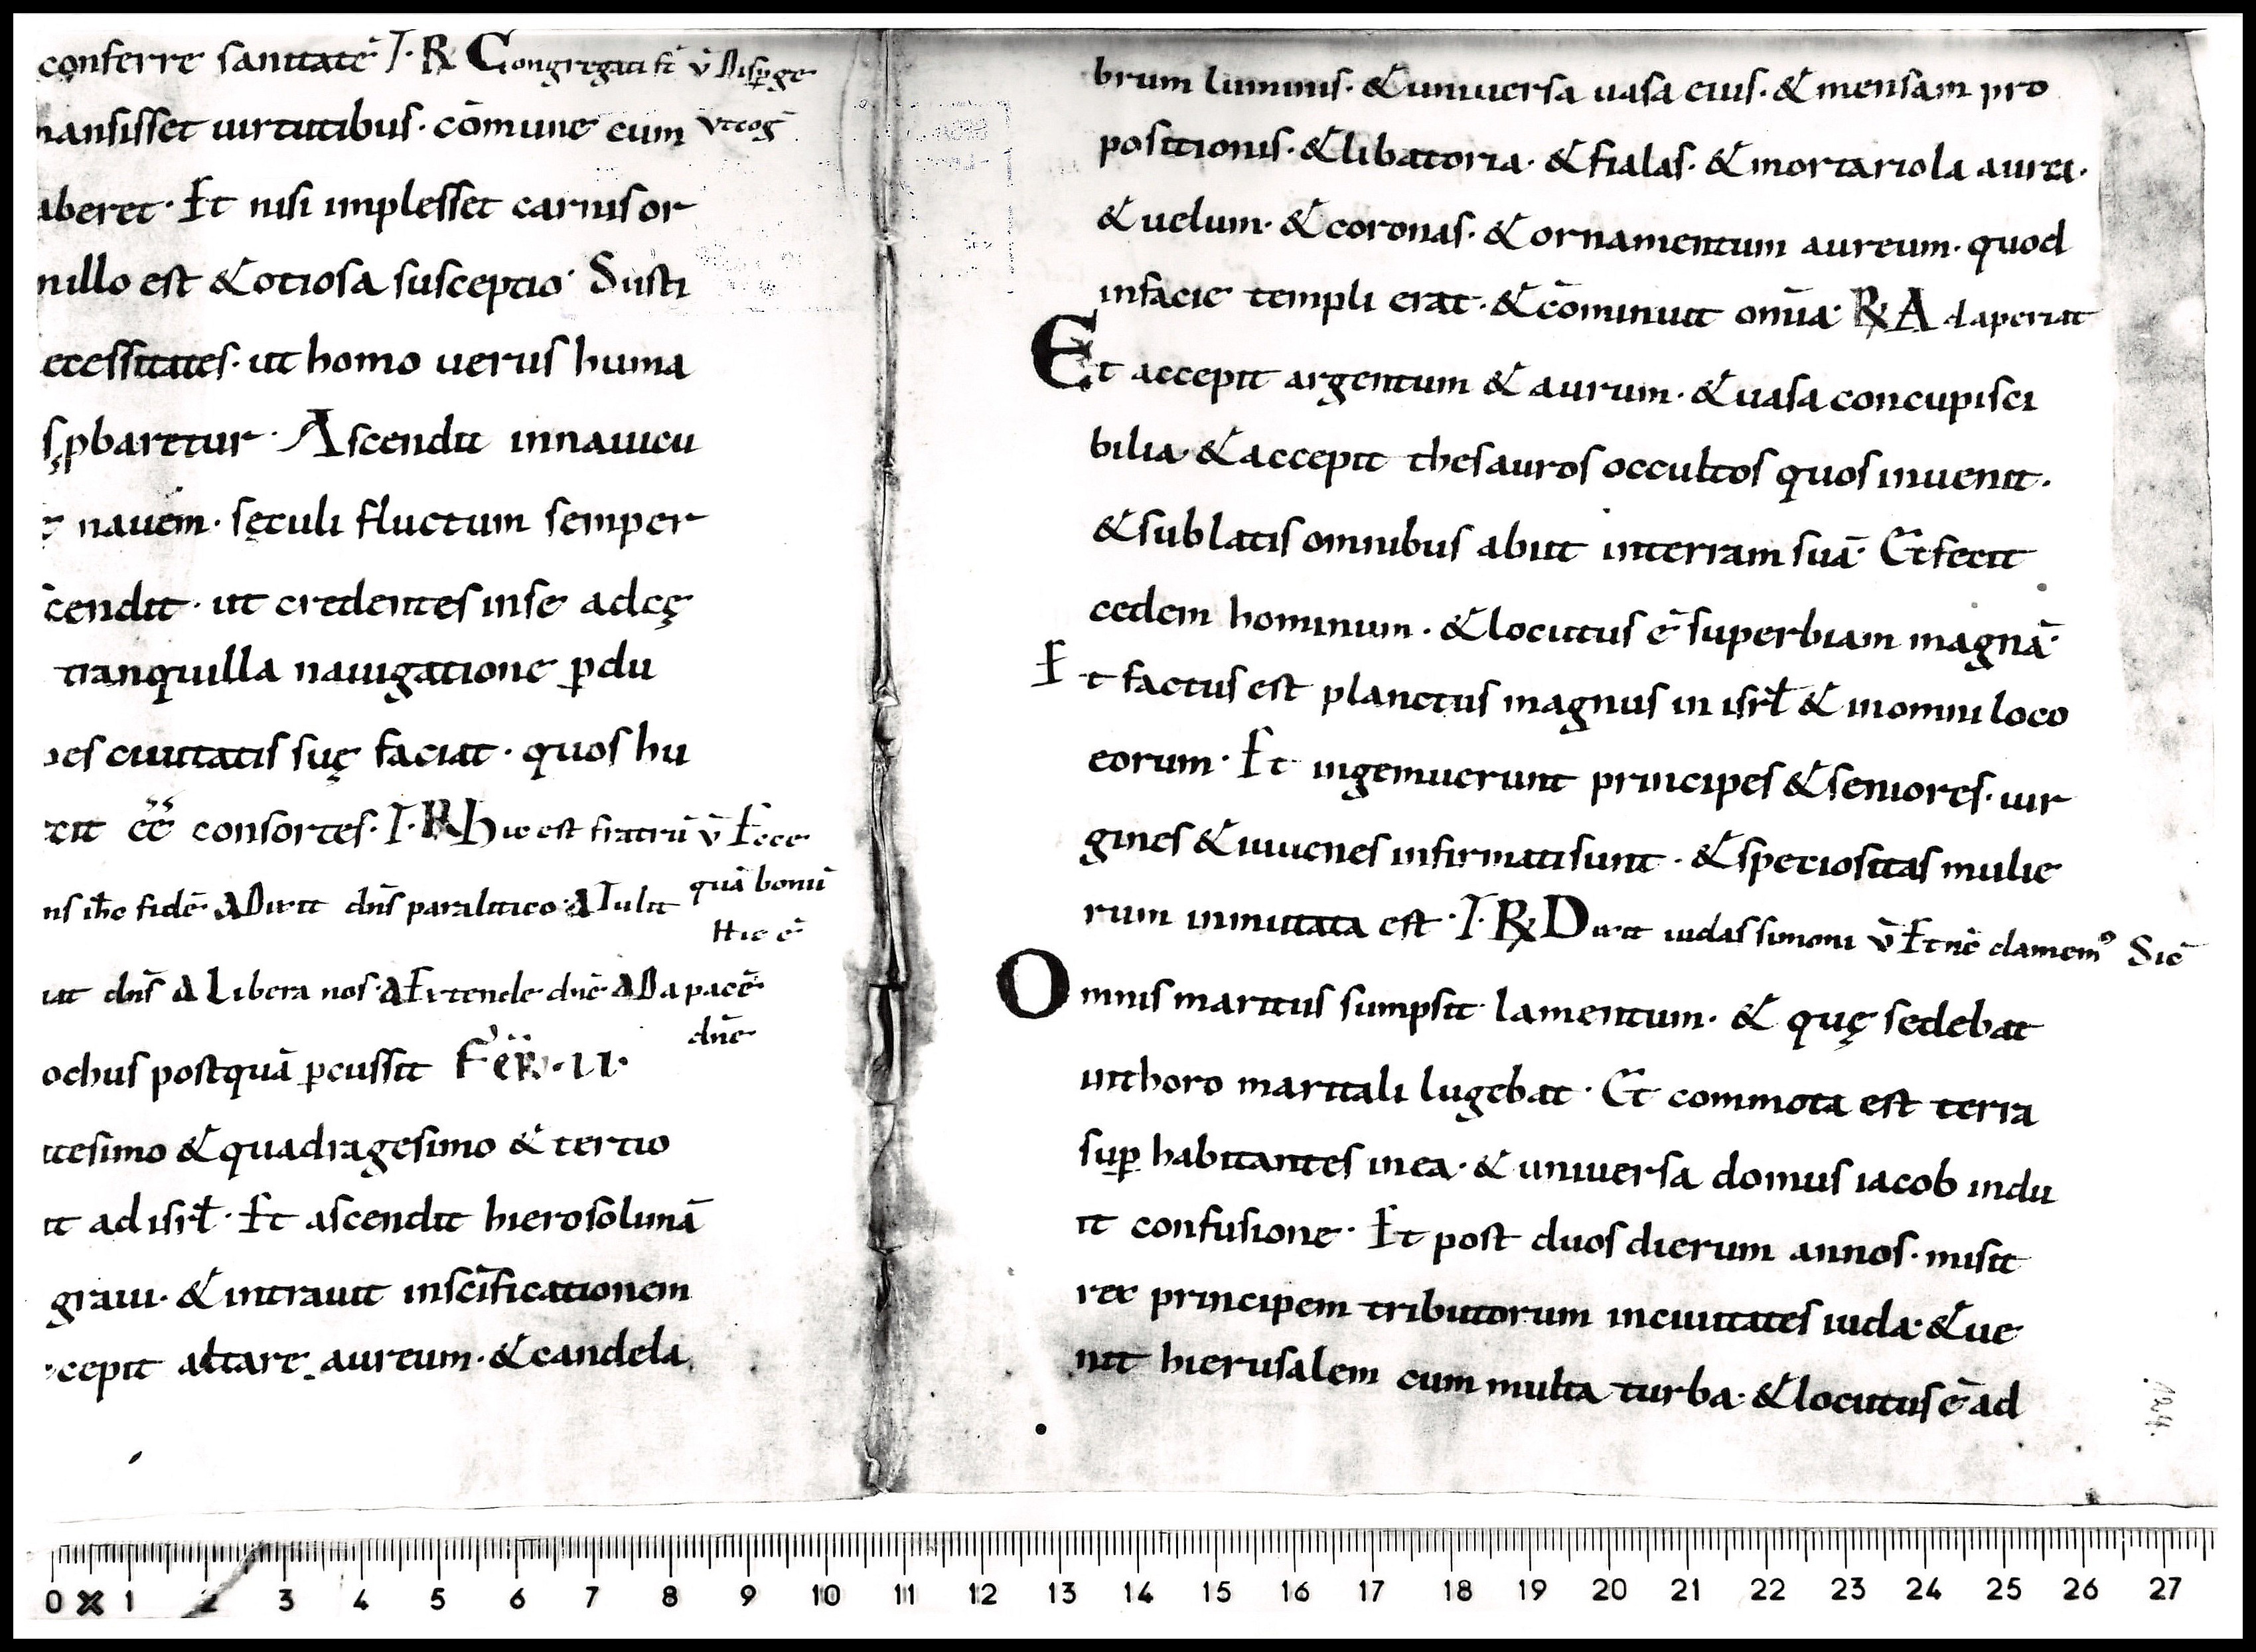 conferre sanitatē I· R Congregati st̄ v̄ Disꝑge
mansisset uirtutibus· cōmune cum vt coḡ
aberet· Et nisi implesset carnis or
nillo est & otiosa susceptio· Susti
ecessitates· ut homo uerus huma
s ꝓbaretur· Ascendit innauicu
nauem· sęculi fluctum semper
cendit· ut credentes inse adeę
tranquilla nauigatione ꝑdu
es ciuitatis suę faciat· quos hu
cit eē consortes· I· R Hic est fratrū v̄ Ecce
quā bonū
ns ih̄c fidē· A Dixit dn̄s paralitico· A Tulit
Hic ē
it dn̄s A Libera nos· A Extende dn̄e· A Da pacē
dn̄e
ochus postquā ꝑcussit Fēr· II·
tesimo & quadragesimo & tertio
it ad isrł· Et ascendit hierosolimā
graui· & intrauit insc̄ificationem
cepit altare aureum· & candela
brum luminis· & uniuersa uasa eius· & mensam pro
positionis· & libatoria· & fialas· & mortariola aurea·
& uelum· & coronas· & ornamentum aureum· quod
infacie templi erat· & cōminuit omīa· R Adaperiat
Et accepit argentum & aurum· & uasa concupisci
bilia· & accepit thesauros occultos quos inuenit·
& sublatis omnibus abiit interram suā· Et fecit
cedem hominum· & locutus ē superbiam magnā·
Et factus est planctus magnus in isrł & inomni loco
eorum· Et ingemuerunt principes & seniores· uir
gines & iuuenes infirmati sunt· & speciositas mulie
rum inmutata est· I· R Dixit iudas simoni v̄ Et nc̄ clamem⁹ Sic̄
Omnis maritus sumpsit lamentum· & quę sedebat
inthoro maritali lugebat· Et commota est terra
suꝑ habitantes inea· & uniuersa domus iacob indu
it confusione· Et post duos dierum annos· misit
rex principem tributorum inciuitates iuda· & ue
nit hierusalem cum multa turba· & locutus ē ad
124.
0 1 2 3 4 5 6 7 8 9 10 11 12 13 14 15 16 17 18 19 20 21 22 23 24 25 26 27